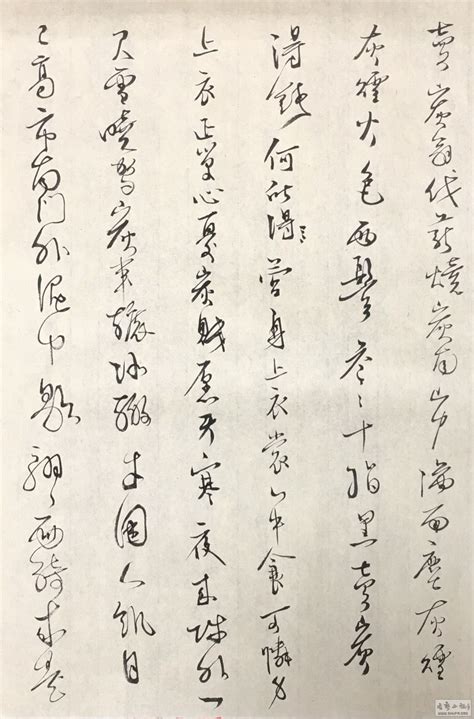 賣炭翁伐薪燒炭南山中滿面塵灰煙
灰煙火色兩鬢蒼〻十指黑賣炭
得錢何所得營身上衣裳口中食可憐身
上衣正單心憂炭賤願天寒夜來城外一
尺雪曉駕炭車輾冰轍牛困人飢日
已高市南門外泥中歇翩〻兩騎來是